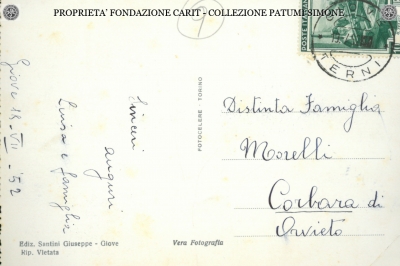 PROPRIETA' FONDAZIONE CARIT - COLLEZIONE PATUMI-SIMONE
POSTE ITALIANE
TERNI
Giove 18-VII-52
Sinceri
auguri
Luisa e famiglia
FOTOCELERE - TORINO
Distinta Famiglia
Morelli
Corbara di
Orvieto
Ediz. Santini Giuseppe - Giove
Rip. Vietata
Vera Fotografia